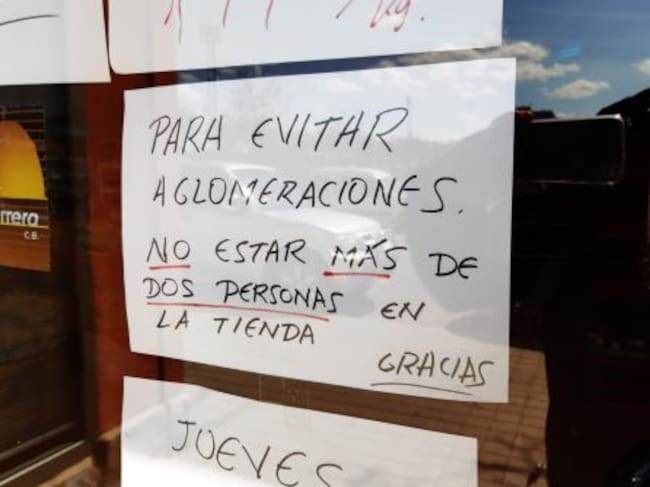 Kg.
PARA EVITAR
AGLOMERACIONES.
NO ESTAR MÁS DE
DOS PERSONAS EN
LA TIENDA
GRACIAS
rrera
C.B.
JUEVES